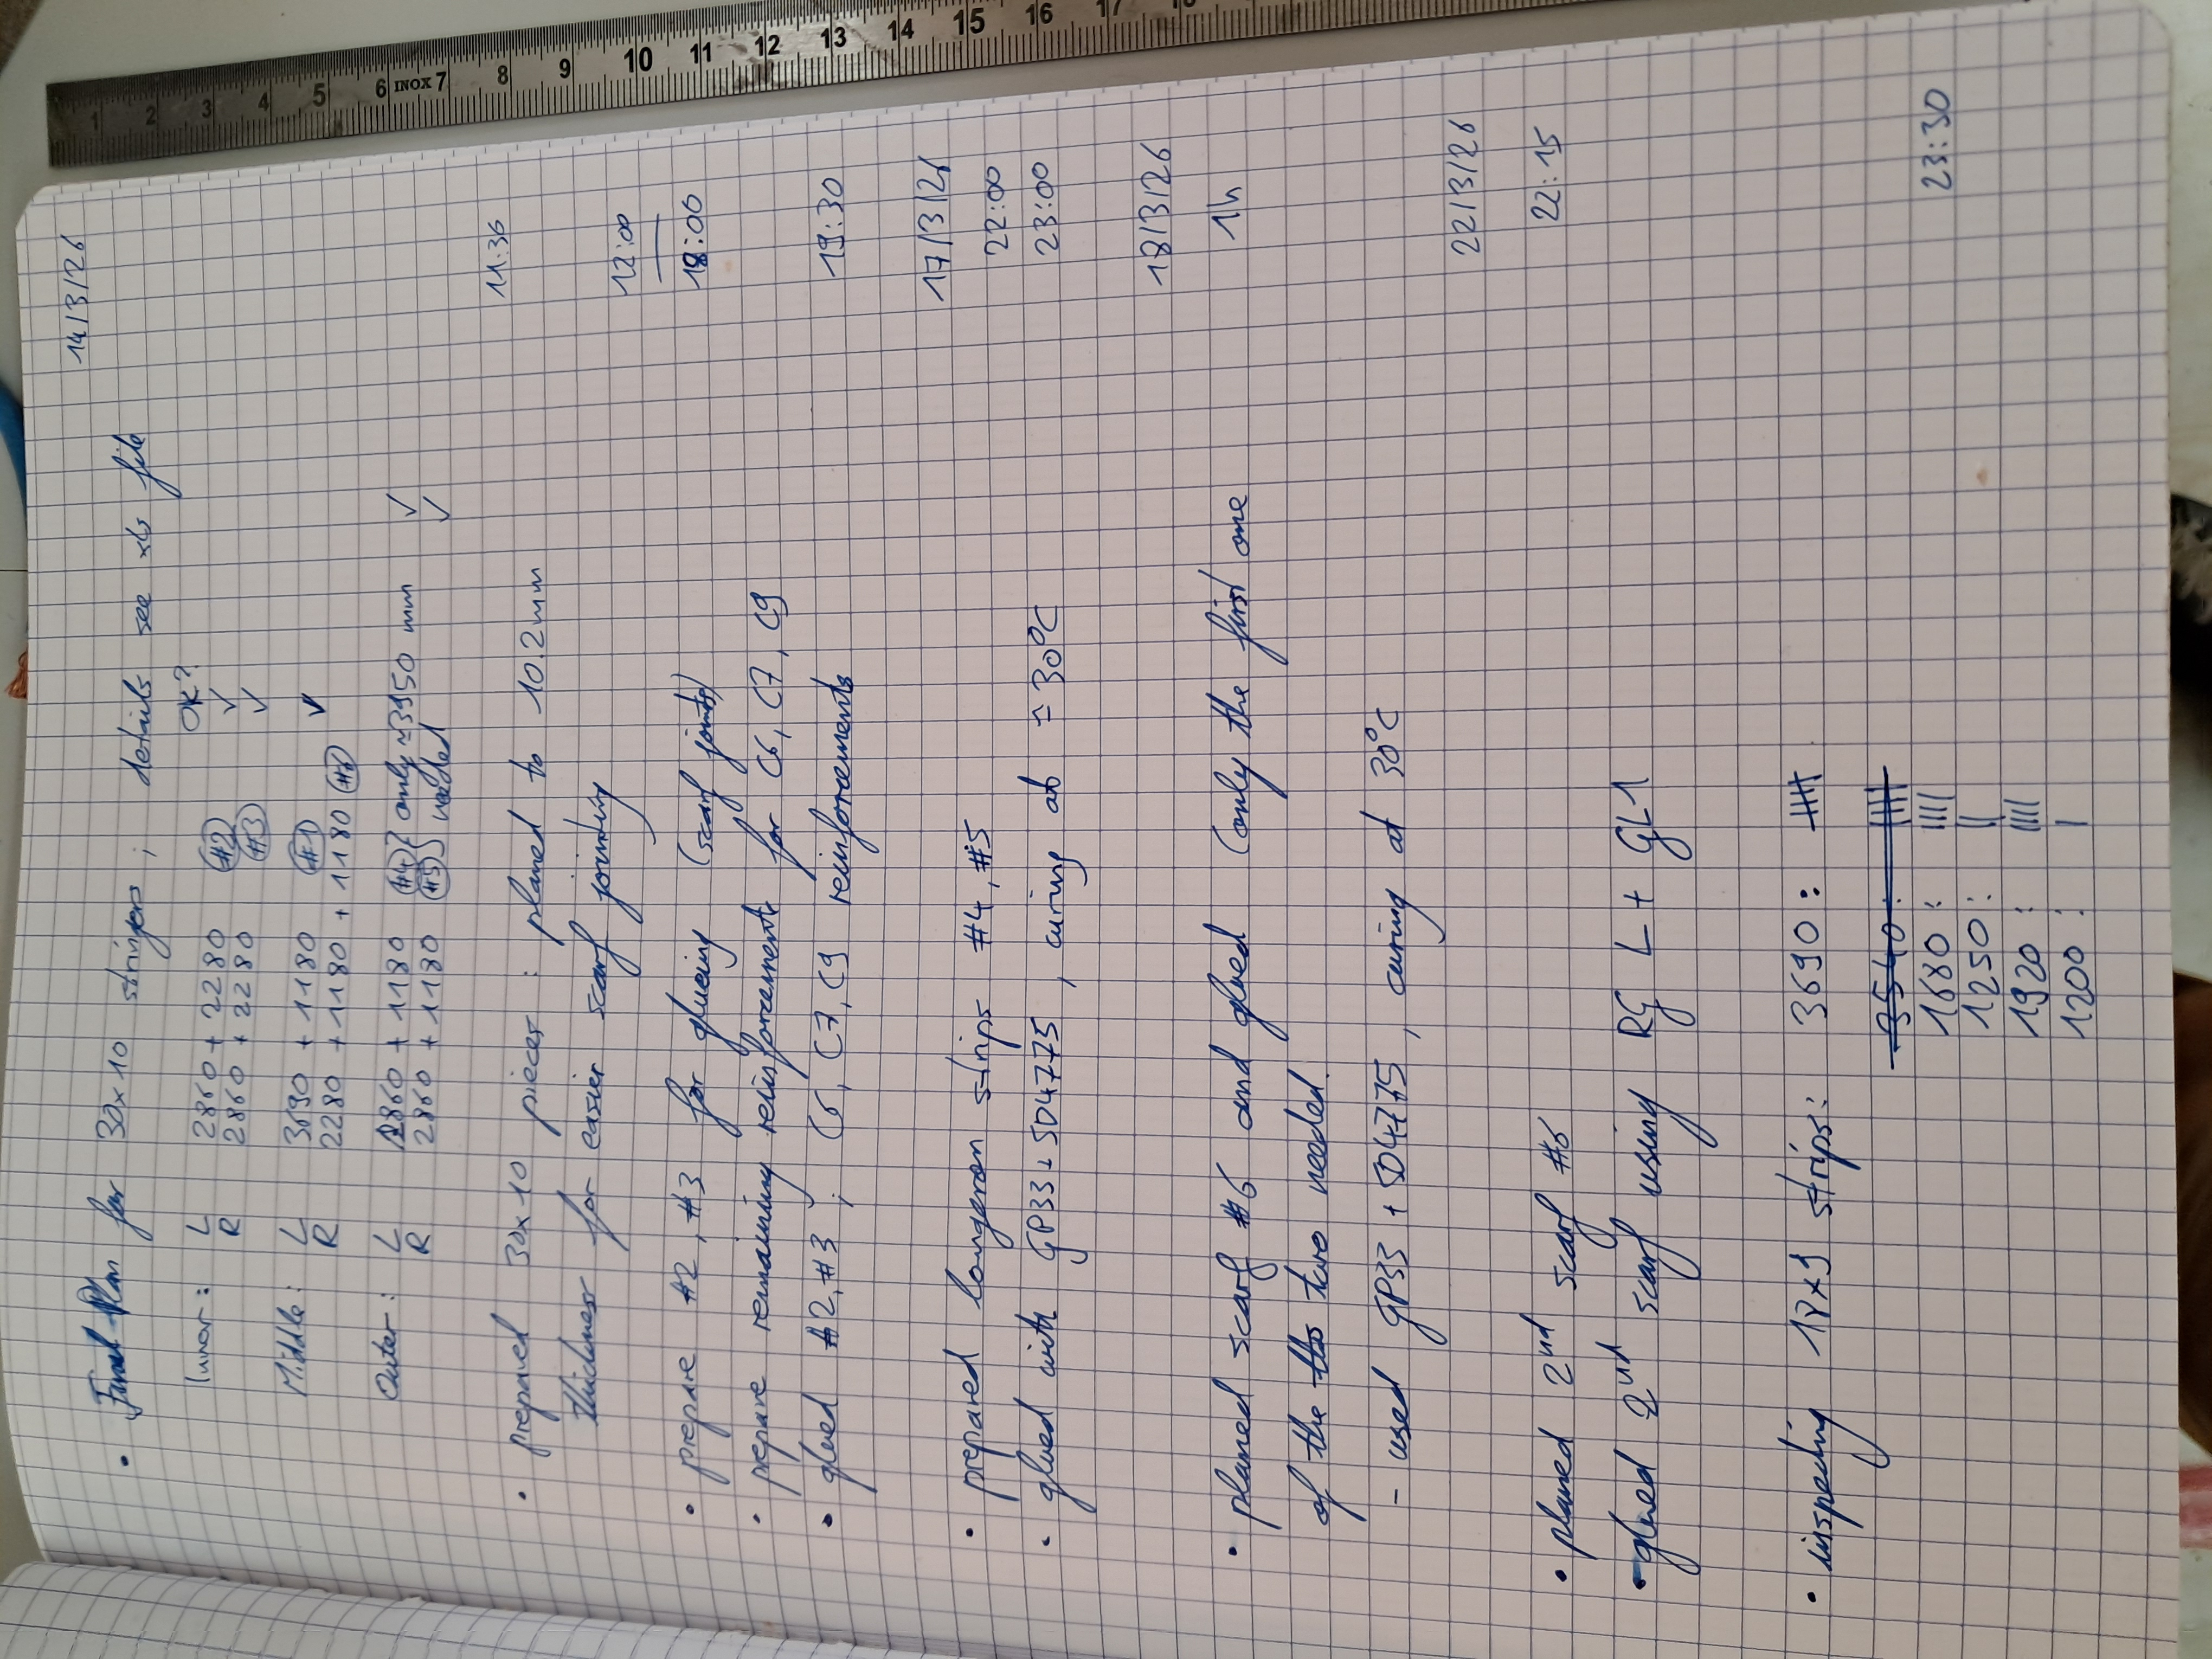 14/3/26
• Final Plan for 30x10 stringers ; details see xls file
OK?
Inner: L 2860 + 2280 #2 ✓
R 2860 + 2280 #3 ✓
Middle: L 3690 + 1180 #1 ✓
R 2280 + 1180 + 1180 #6
Outer: L 2860 + 1180 #4 } only ≈3950 mm ✓
R 2860 + 1180 #5 } needed ✓
• prepared 30x10 pieces : planed to 10.2mm 11:36
thickness for easier scarf jointing
12:00
• prepare #2, #3 for glueing (scarf joints) 18:00
• prepare remaining reinforcements for C6, C7, C9
• glued #2, #3 ; C6, C7, C9 reinforcements 19:30
17/3/26
• prepared longeron strips #4, #5 22:00
• glued with GP33 + 504775 , curing at ≈ 30°C 23:00
18/3/26
• planed scarf #6 and glued (only the first one 1h
of the two needed.
- used GP33 + 504775 , curing at 30°C
22/3/26
• planed 2nd scarf #6 22:15
• glued 2nd scarf using RG L + GL1
• inspecting 18x9 strips: 3690: 卌
3540: 卌
1680: ||||
1250: || 23:30
1920: ||||
1200: |
1 2 3 4 5 6 INOX 7 8 9 10 11 12 13 14 15 16 17 18